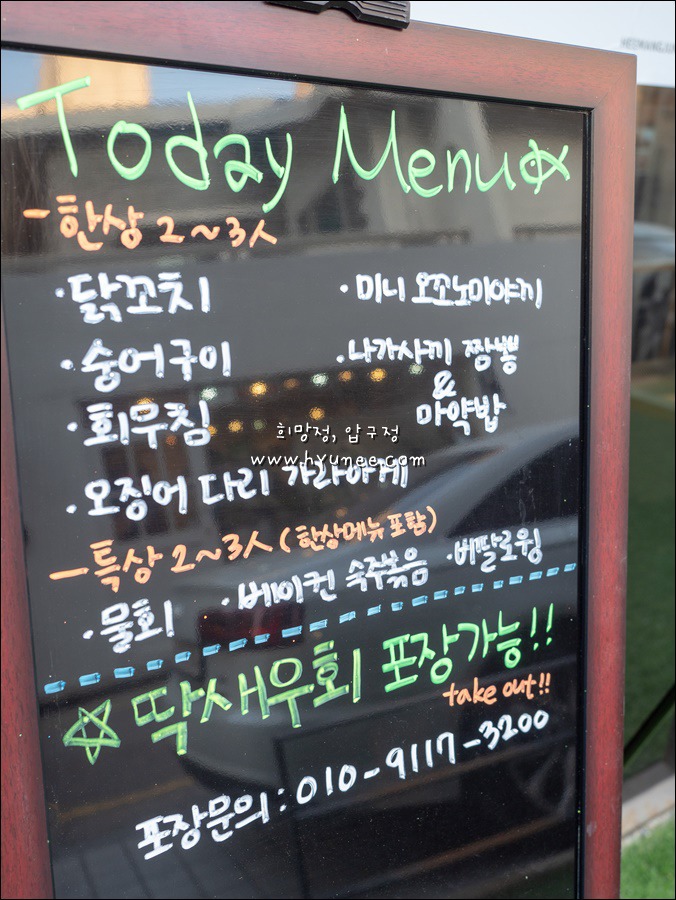 Today Menu
-한상 2~3人
·닭꼬치
·미니 오꼬노미야끼
·숭어구이
·나가사끼 짬뽕
&
마약밥
·회무침
희망정, 압구정
www.hyunee.com
·오징어 다리 가라아게
-특상 2~3人 (한상메뉴 포함)
·물회 ·베이컨 숙주볶음 ·버팔로윙
☆ 딱새우회 포장가능!!
take out!!
포장문의 : 010-9117-3200